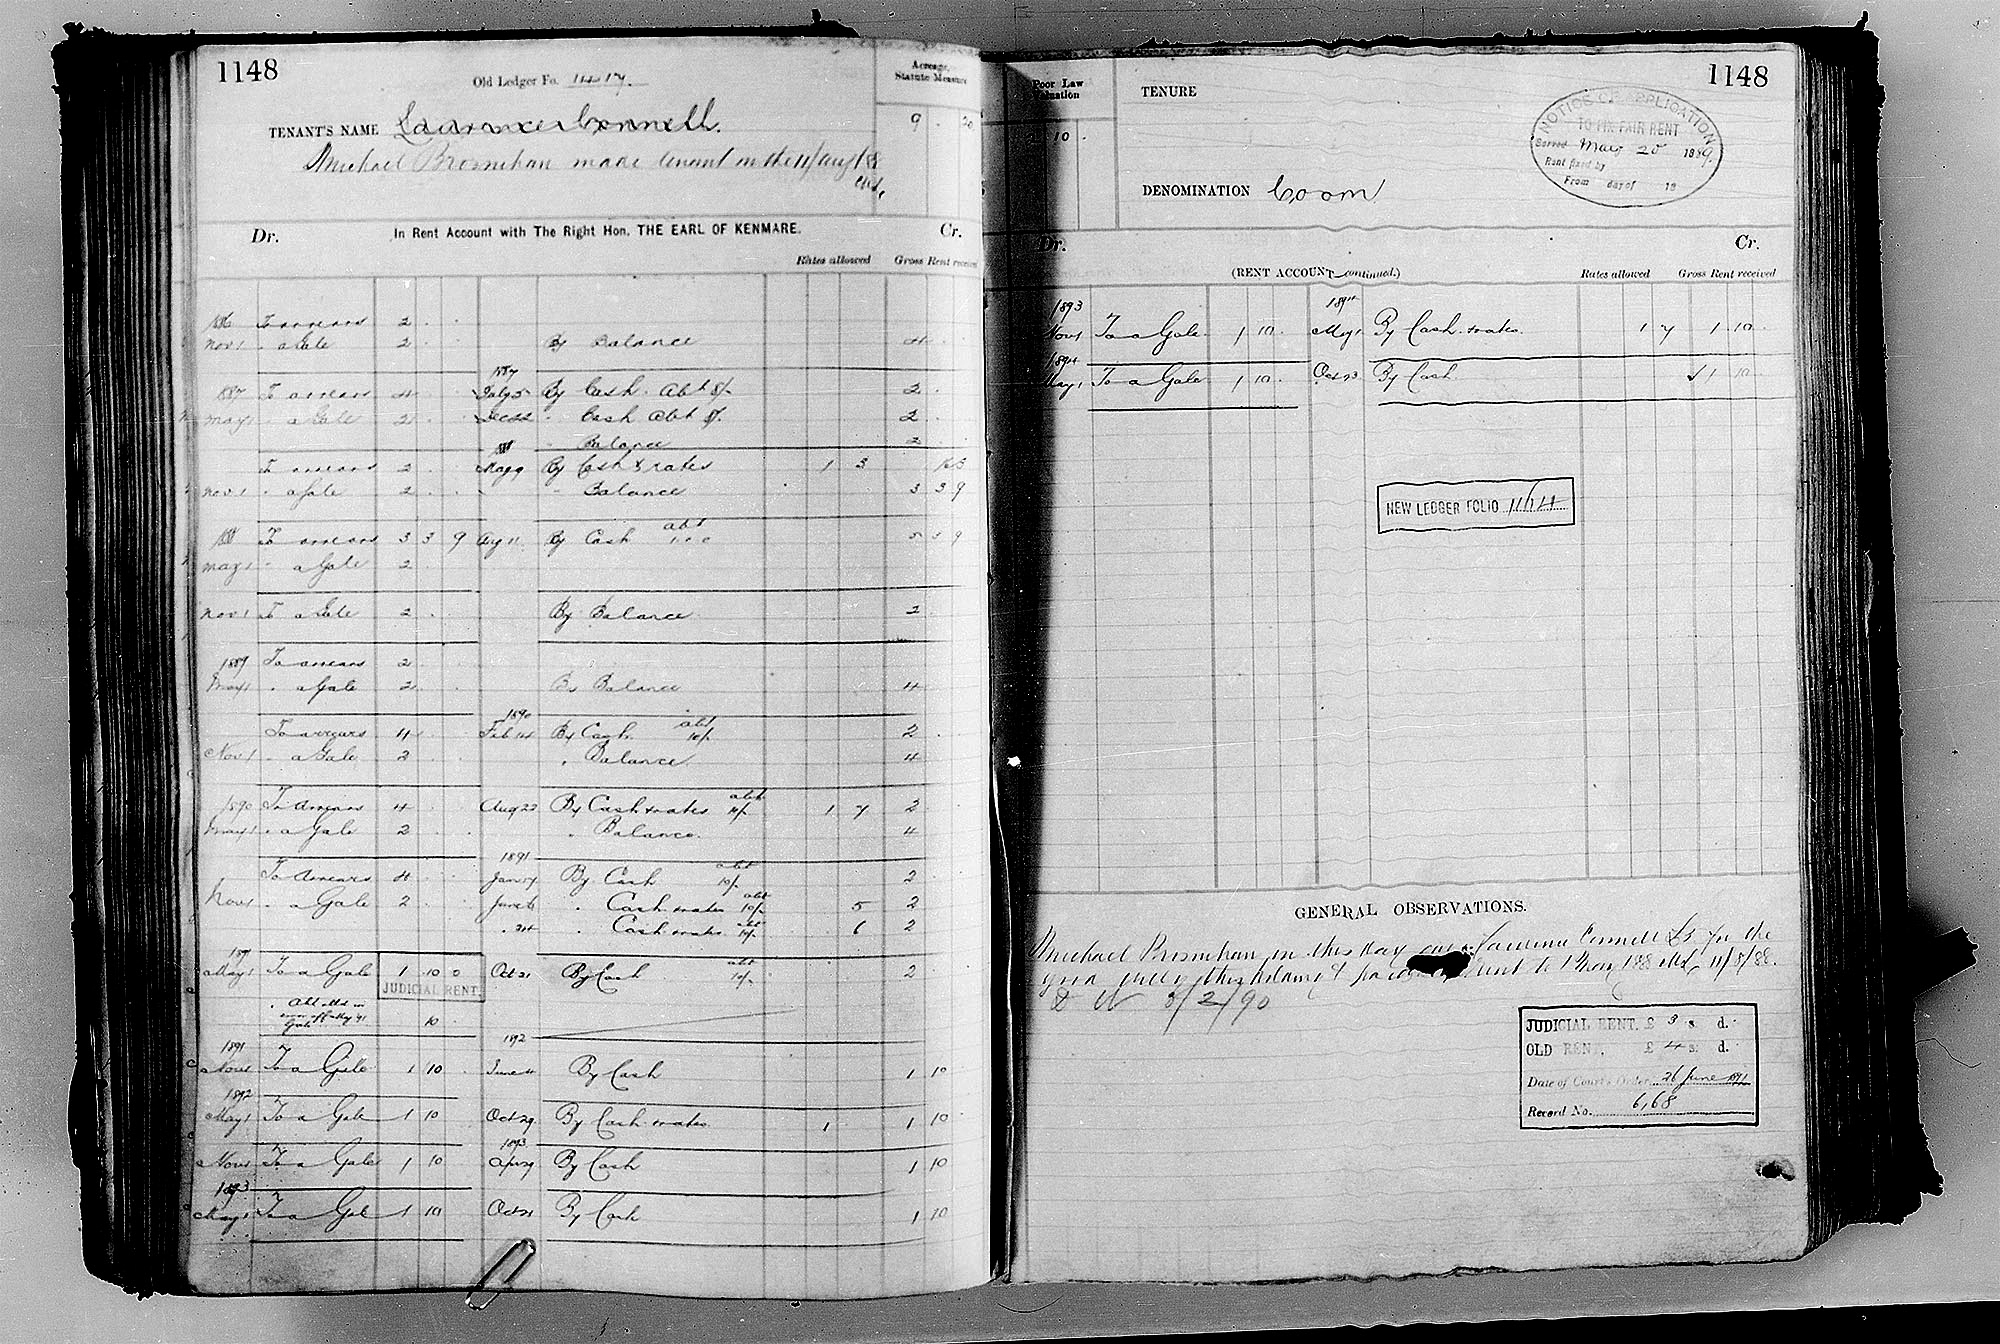 1148
Old Ledger Fo. 1417.
Acreage,
Statute Measure
TENANT'S NAME Laurence Connell.
9 . 20
Michael Brosnihan made tenant on the 11/Aug/88
In Rent Account with The Right Hon. THE EARL OF KENMARE.
Dr. Cr.
Rates allowed Gross Rent received
1886 To arrears 2 . .
Nov 1 " a Gale 2 . . By Balance 4 . .
1887
1887 To arrears 4 . . July 5 By Cash Abt 8/- 2 .
May 1 " a Gale 2 . . Dec 22 " Cash Abt 8/- 2 .
" Balance 2 . .
To arrears 2 . . May 9 By Cash & rates 1 3
Nov 1 " a Gale 2 . . " Balance 3 3 9
abt
1888 To arrears 3 3 9 Aug 11 By Cash 1.0.0 5 3 9
May 1 " a Gale 2 . .
Nov 1 To a Gale 2 . . By Balance 2 .
1889 To arrears 2 . .
May 1 " a Gale 2 . . By Balance 4 .
1890
To arrears 4 . . Feb 14 By Cash abt 10/- 2 .
Nov 1 " a Gale 2 . . " Balance 4 .
1890 To Arrears 4 . . Aug 22 By Cash & rates abt 10/- 1 7 2 .
May 1 " a Gale 2 . . " Balance 4 .
1891
To Arrears 4 . . Jan 17 By Cash abt 10/- 2 .
Nov 1 " a Gale 2 . . June 6 " Cash & rates abt 10/- 5 2
" 24 " Cash & rates abt 10/- 6 2
1891
May 1 To a Gale 1 10 0 Oct 21 By Cash abt 10/- 2 .
JUDICIAL RENT
Gale 10
1892
1891
Nov 1 To a Gale 1 10 June 11 By Cash 1 10
1892
May 1 To a Gale 1 10 Oct 29 By Cash & rates 1 1 10
1893
Nov 1 To a Gale 1 10 Apr 29 By Cash 1 10
1893
May 1 To a Gale 1 10 Oct 21 By Cash 1 10
1148
Poor Law
Valuation
10
TENURE
NOTICE OF APPLICATION
TO FIX FAIR RENT
Served May 20 1889.
Rent fixed by
From day of 18
DENOMINATION Coom
Dr. Cr.
(RENT ACCOUNT continued.)
Rates allowed Gross Rent received
1893 1894
Nov 1 To a Gale 1 10 . May 1 By Cash & rates 1 7 1 10
1894
May 1 To a Gale 1 10 . Oct 23 By Cash √ 1 10
NEW LEDGER FOLIO
GENERAL OBSERVATIONS.
Michael Brosnihan on this day Laurence Connell for the
this holding & paid rent to 1 May 1888 11/8/88.
3/2/90
JUDICIAL RENT, £ 3 s. d.
OLD RENT, £ 4 s. d.
Date of Court's Order 26 June 1891
Record No. 6,68